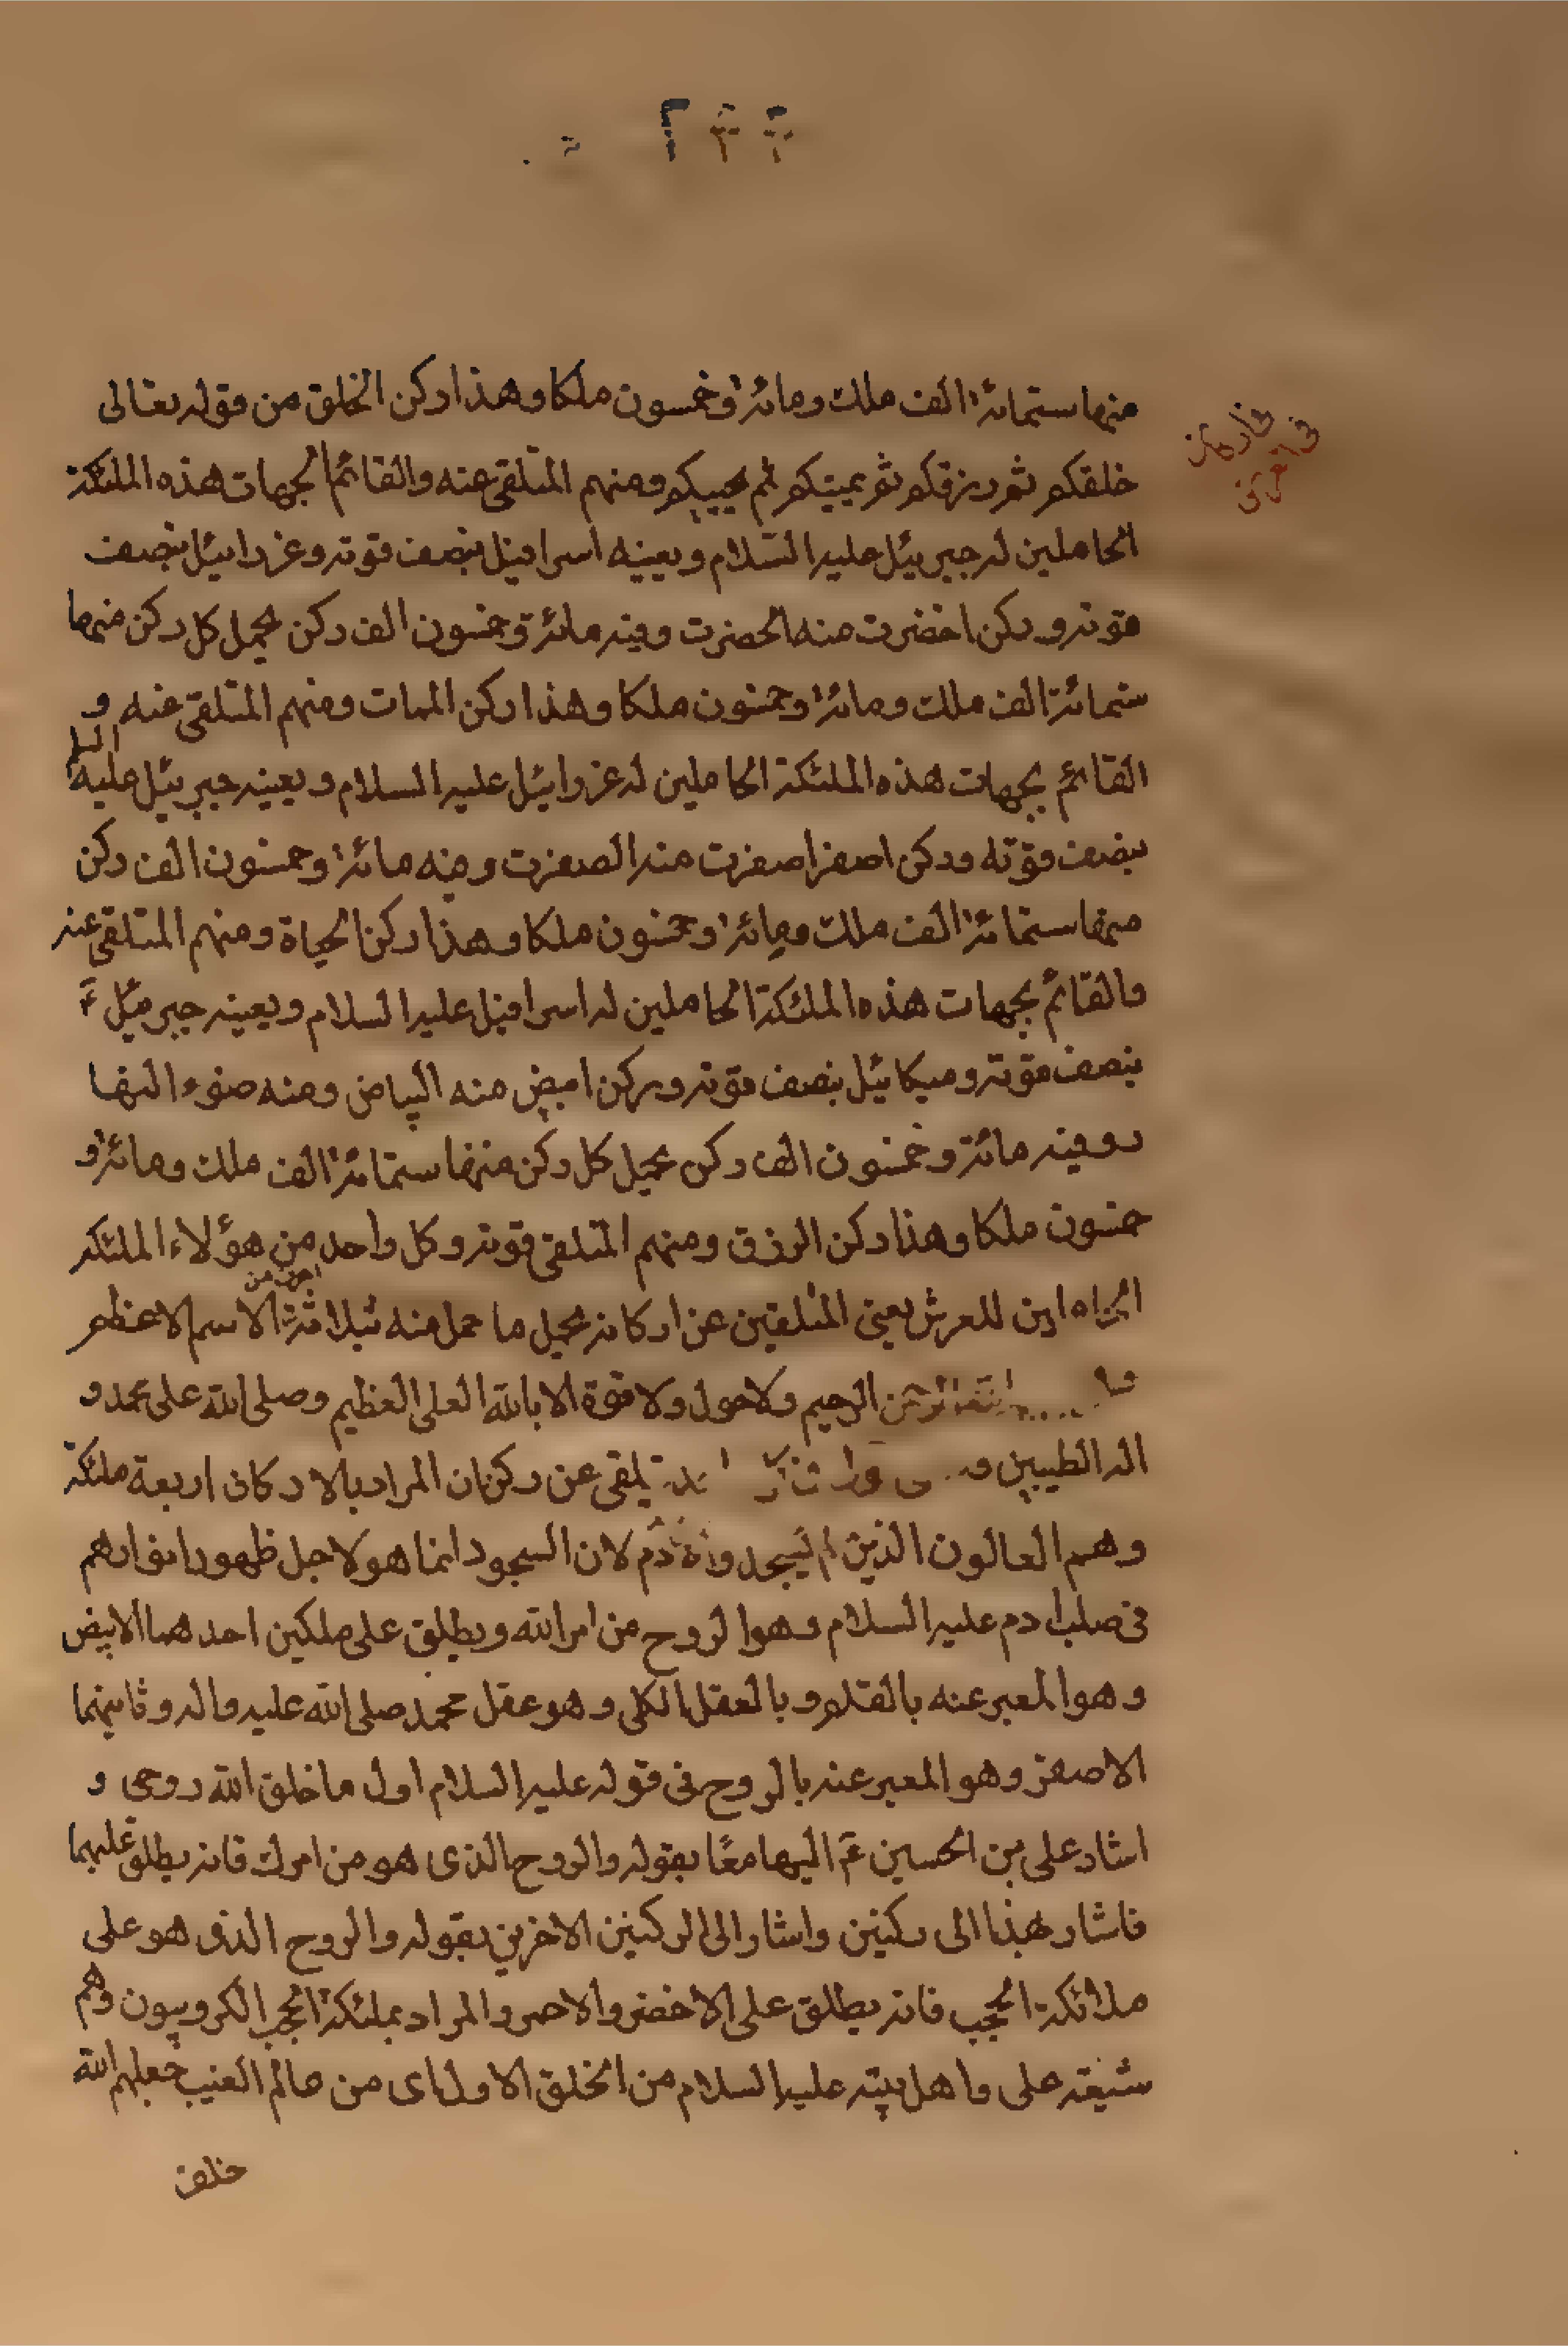 منها ستمائة الف ملك ومائة وخمسون ملكا وهذا ركن الخلق من قوله تعالى
خلقكم ثم رزقكم ثم يميتكم ثم يحييكم ومنهم المتلقى عنه والقائم بجهات هذه الملئكة
الحاملين له جبرئيل عليه السلام ويعينه اسرافيل بنصف قوته وعزرائيل بنصف
قوته وركن اخضر اخضرت منه الخضرة وفيه مائة وخمسون الف ركن يحمل كل ركن منها
ستمائة الف ملك ومائة وخمسون ملكا وهذا ركن الممات ومنهم المتلقى عنه و
القائم بجهات هذه الملئكة الحاملين له عزرائيل عليه السلام ويعينه جبرئيل عليه السلام
بنصف قوته وركن اصفر اصفرت منه الصفرة وفيه مائة وخمسون الف ركن
منها ستمائة الف ملك ومائة وخمسون ملكا وهذا ركن الحياة ومنهم المتلقى عنه
والقائم بجهات هذه الملئكة الحاملين له اسرافيل عليه السلام ويعينه جبرئيل ع
بنصف قوته وميكائيل بنصف قوته وركن ابيض منه البياض ومنه ضوء النها
ر وفيه مائة وخمسون الف ركن يحمل كل ركن منها ستمائة الف ملك ومائة و
خمسون ملكا وهذا ركن الرزق ومنهم المتلقى قوته وكل واحد من هؤلاء الملئكة
للعرش يعنى المتلقين عن اركانه يحمل ما حمل منه بثلاثة احرف من الاسم الاعظم
الرحمن الرحيم ولا حول ولا قوة الا بالله العلى العظيم وصلى الله على محمد و
اله الطيبين يتلقى عن ركن ان المراد بالاركان اربعة ملئكة
وهم العالون الذين لم يسجدوا لادم لان السجود انما هو لاجل ظهور انوارهم
فى صلب ادم عليه السلام وهو الروح من امر الله ويطلق على ملكين احدهما الابيض
وهو المعبر عنه بالقلم وبالعقل الكلى وهو عقل محمد صلى الله عليه واله وثانيهما
الاصفر وهو المعبر عنه بالروح فى قوله عليه السلام اول ما خلق الله روحى و
اشار على بن الحسين ع اليها معا بقوله والروح الذى هو من امرك فانه يطلق عليهما
فاشار بهذا الى ركنين واشار الى الركنين الاخرين بقوله والروح الذى هو على
ملائكة الحجب فانه يطلق على الاخضر والاحمر والمراد بملئكة الحجب الكروبيون وهم
شيعة على واهل بيته عليه السلام من الخلق الاول اى من عالم الغيب جعلهم الله
خلف